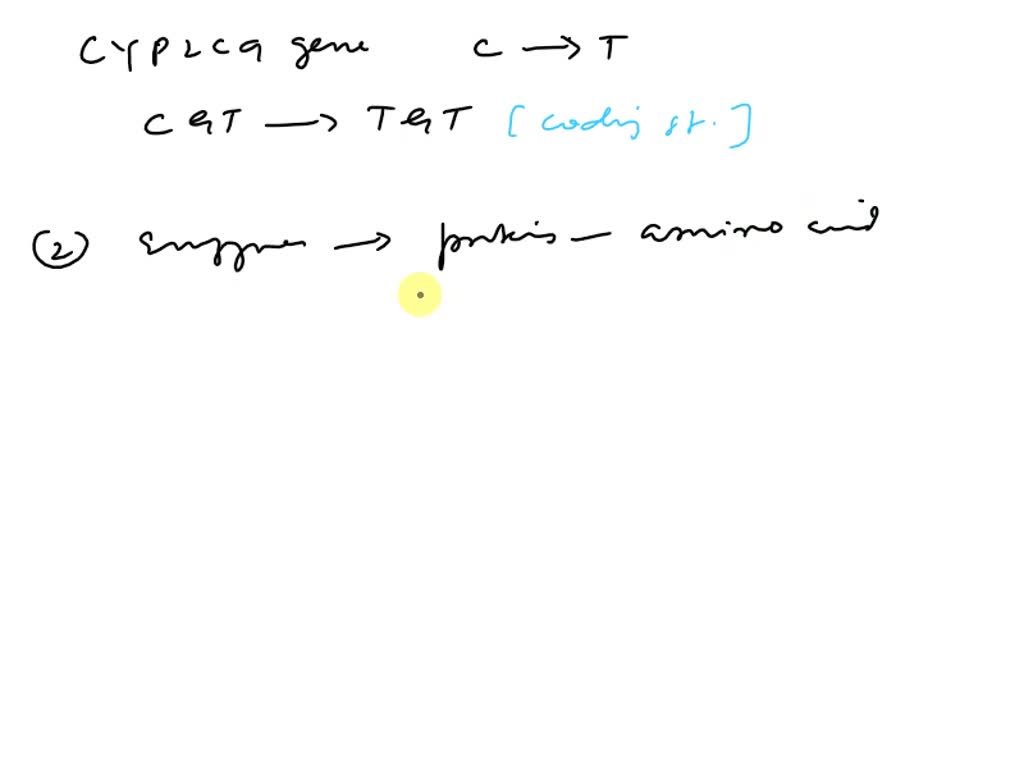 CYP2C9 gene C → T
CGT → TGT [coding st.]
(2) Enzymes → proteins - amino acid